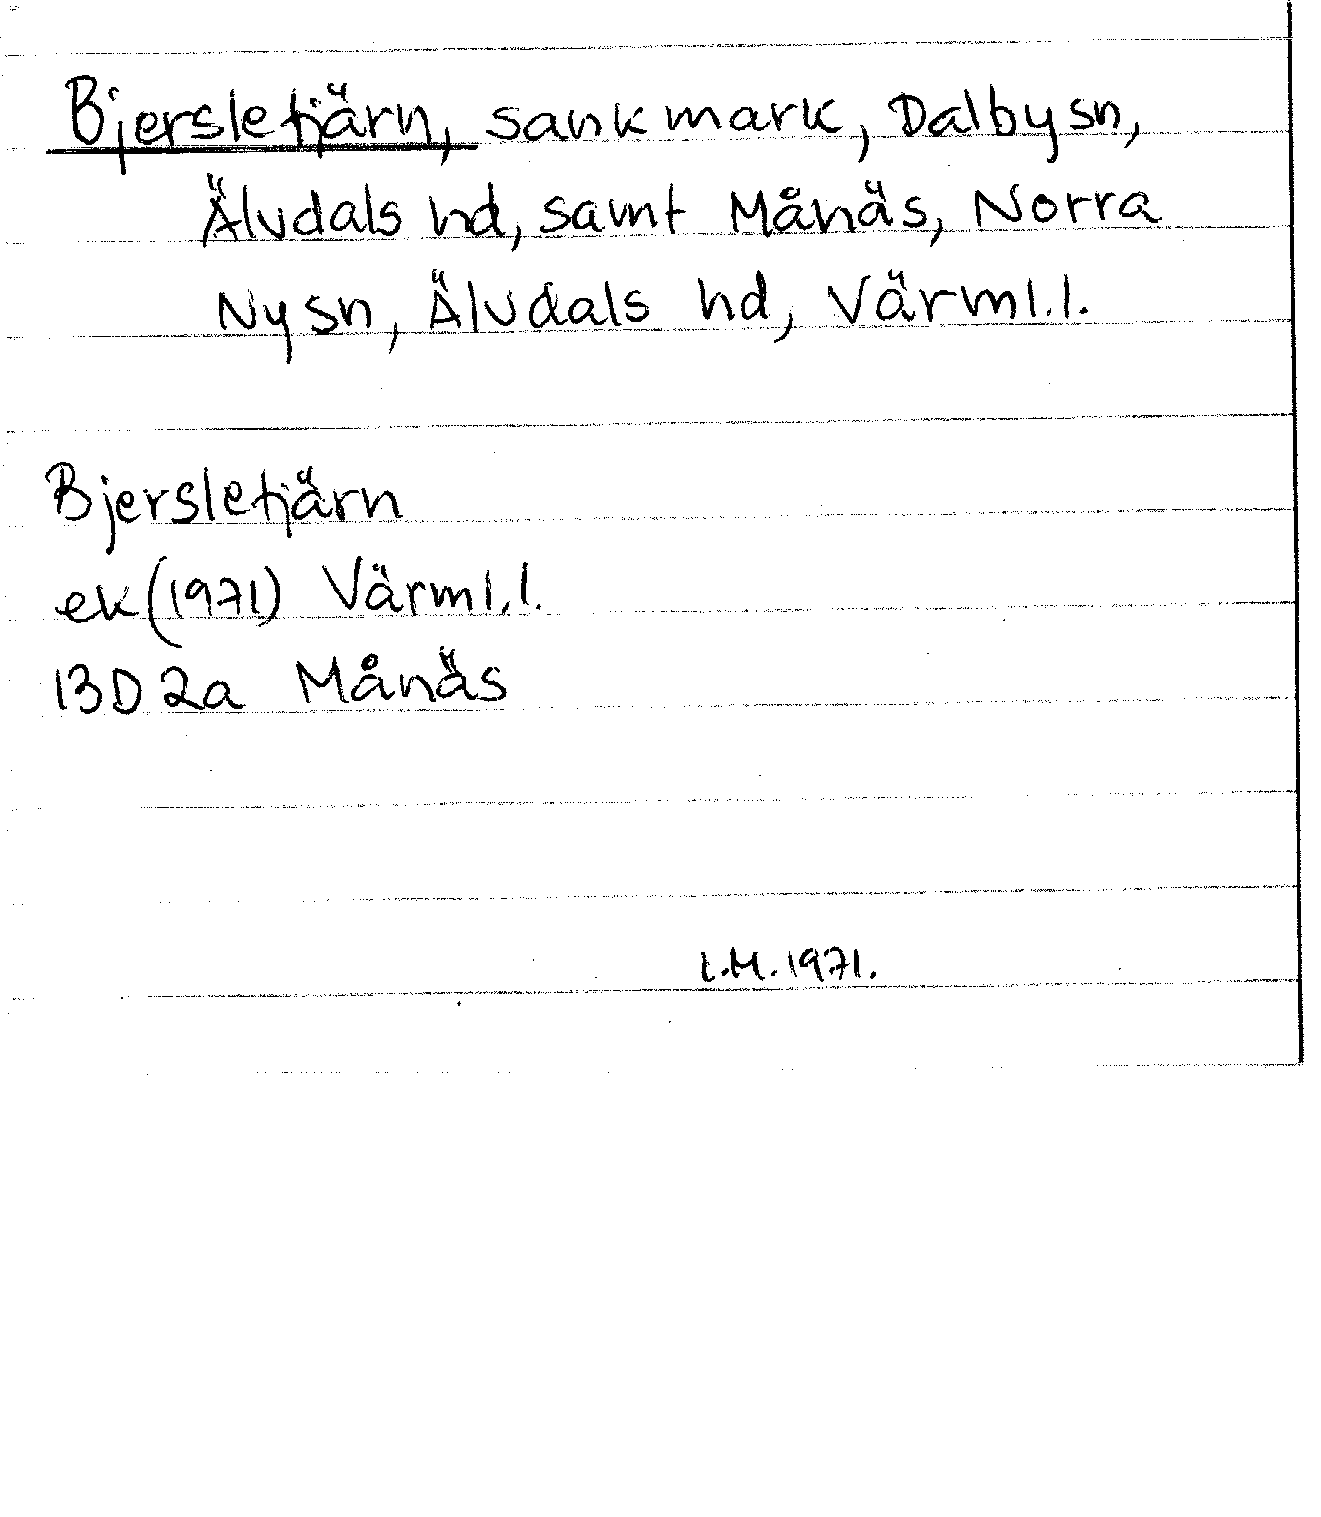 Bjersletjärn, sankmark, Dalby sn,
Älvdals hd, samt Månäs, Norra
Ny sn, Älvdals hd, Värml.l.
Bjersletjärn
ek (1971) Värml.l.
13D 2a Månäs
L.M. 1971.